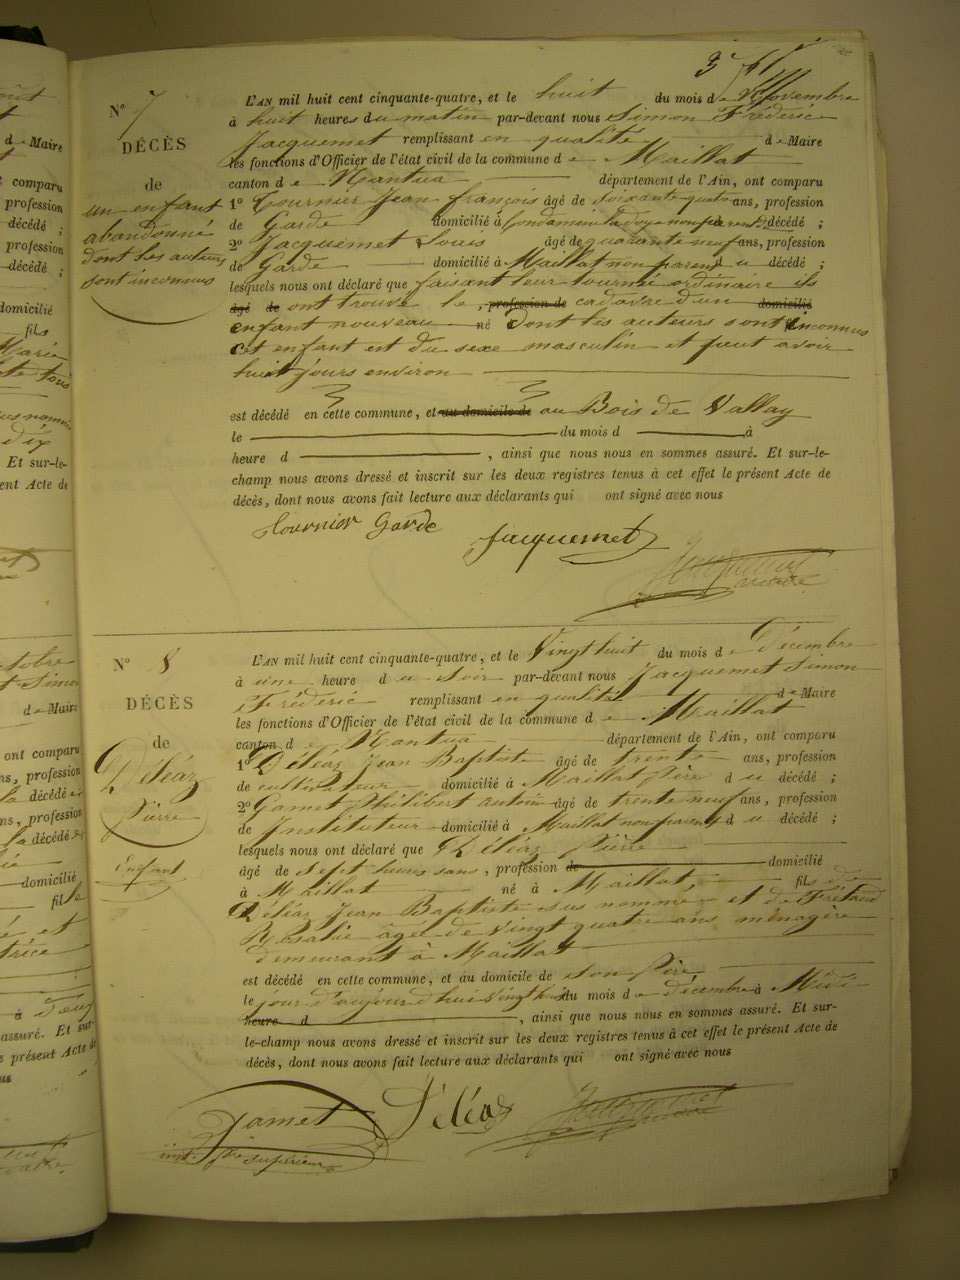 N° 7
DÉCÈS
de
un enfant
abandonné
dont les auteurs
sont inconnus
L'AN mil huit cent cinquante-quatre, et le huit du mois de Novembre
à huit heures du matin par-devant nous Simon Fréderic
Jacquemet remplissant en qualité de Maire
les fonctions d'Officier de l'état civil de la commune de Maillat
canton de Nantua département de l'Ain, ont comparu
1° Tournier Jean françois âgé de soixante quatre ans, profession
de Garde domicilié à Condamine la doye non parent décédé ;
2° Jacquemet Louis âgé de quarante neuf ans, profession
de Garde domicilié à Maillat non parent du décédé ;
lesquels nous ont déclaré que faisant leur tournée ordinaire ils
âgé de ont trouvé le , profession de cadavre d'un domicilié
enfant nouveau né dont les auteurs sont inconnus
cet enfant est du sexe masculin et peut avoir
huit jours environ
est décédé en cette commune, et au domicile de au Bois de Vallay
le du mois d à
heure d , ainsi que nous nous en sommes assuré. Et sur-le-
champ nous avons dressé et inscrit sur les deux registres tenus à cet effet le présent Acte de
décès, dont nous avons fait lecture aux déclarants qui ont signé avec nous
tournier Garde Jacquemet
N° 8
DÉCÈS
de
Déléaz
Pierre
Enfant
L'AN mil huit cent cinquante-quatre, et le Vingt huit du mois de Décembre
à une heure du soir par-devant nous Jacquemet Simon
Fréderic remplissant en qualité de Maire
les fonctions d'Officier de l'état civil de la commune de Maillat
canton de Nantua département de l'Ain, ont comparu
1° Déléaz Jean Baptiste âgé de trente ans, profession
de cultivateur domicilié à Maillat père du décédé ;
2° Gamet Philibert antoine âgé de trente neuf ans, profession
de Instituteur domicilié à Maillat non parent du décédé ;
lesquels nous ont déclaré que Déléaz Pierre
âgé de sept heures ans, profession de domicilié
à Maillat né à Maillat, fils de
Déléaz Jean Baptiste sus nommé et de
Rosalie âgée de vingt quatre ans ménagère
demeurant à Maillat
est décédé en cette commune, et au domicile de son Père
le jour d'aujourd'hui vingt huit du mois de décembre à Midi
heure d , ainsi que nous nous en sommes assuré. Et sur-
le-champ nous avons dressé et inscrit sur les deux registres tenus à cet effet le présent Acte de
décès, dont nous avons fait lecture aux déclarants qui ont signé avec nous
Gamet Déléaz
inst. supérieur